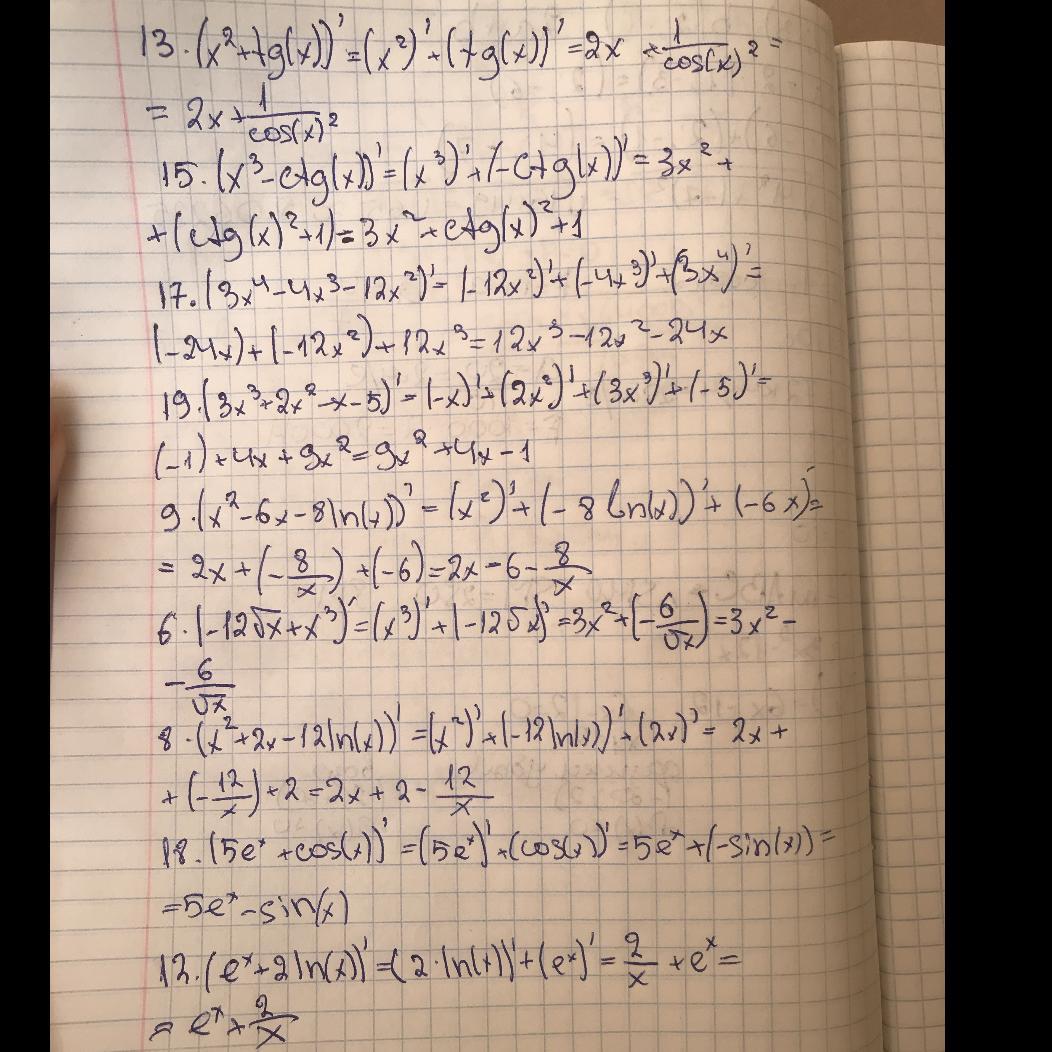 13. (x²+tg(x))' = (x²)' + (tg(x))' = 2x + 1/cos(x)² =
= 2x + 1/cos(x)²
15. (x³-ctg(x))' = (x³)' + (-ctg(x))' = 3x² +
+ (ctg(x)²+1) = 3x² + ctg(x)² + 1
17. (3x⁴-4x³-12x²)' = (-12x²)' + (-4x³)' + (3x⁴)' =
(-24x) + (-12x²) + 12x³ = 12x³ - 12x² - 24x
19. (3x³+2x²-x-5)' = (-x)' + (2x²)' + (3x³)' + (-5)' =
(-1) + 4x + 9x² = 9x² + 4x - 1
9. (x²-6x-8ln(x))' = (x²)' + (-8 ln(x))' + (-6x)' =
= 2x + (-8/x) + (-6) = 2x - 6 - 8/x
6. (-12√x+x³)' = (x³)' + (-12√x)' = 3x² + (-6/√x) = 3x² -
- 6/√x
8. (x²+2x-12ln(x))' = (x²)' + (-12ln(x))' + (2x)' = 2x +
+ (-12/x) + 2 = 2x + 2 - 12/x
18. (5eˣ+cos(x))' = (5eˣ)' + (cos(x))' = 5eˣ + (-sin(x)) =
= 5eˣ - sin(x)
12. (eˣ+2ln(x))' = (2·ln(x))' + (eˣ)' = 2/x + eˣ =
= eˣ + 2/x